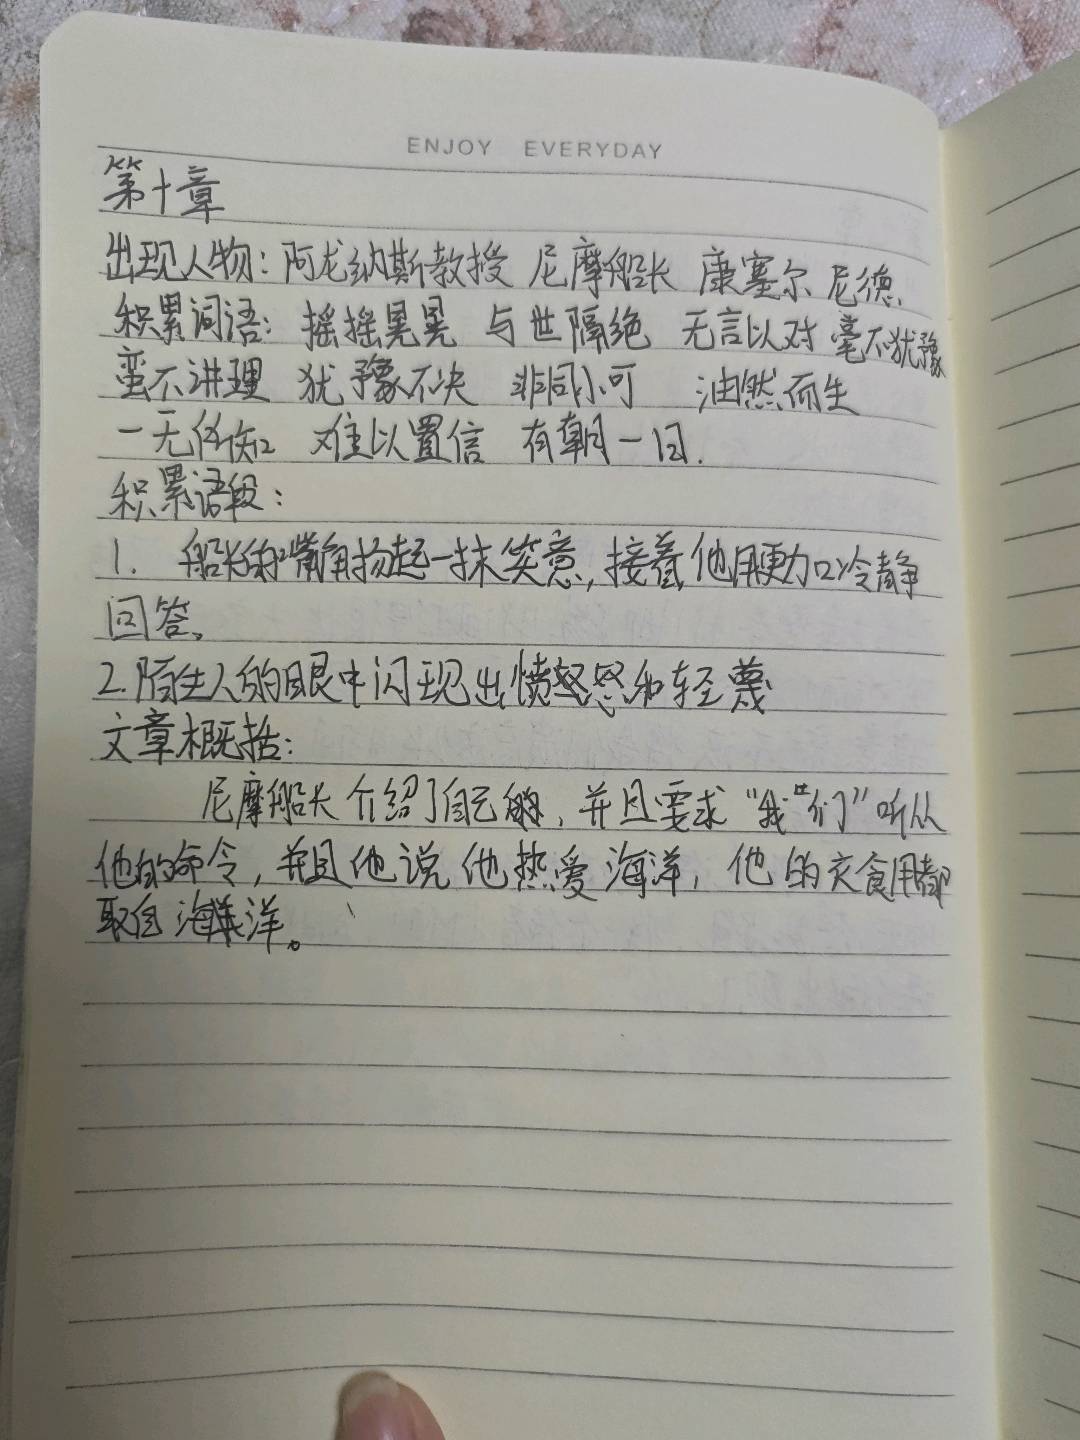 ENJOY EVERYDAY
第十章
出现人物：阿龙纳斯教授 尼摩船长 康塞尔 尼德.
积累词语：摇摇晃晃 与世隔绝 无言以对 毫不犹豫
蛮不讲理 犹豫不决 非同小可 油然而生
一无所知 难以置信 有朝一日.
积累语段：
1. 船长的嘴角扬起一抹笑意，接着他用更加冷静
回答。
2.陌生人的眼中闪现出愤怒和轻蔑
文章概括：
尼摩船长介绍了自己，并且要求“我们”听从
他的命令，并且他说他热爱海洋，他的衣食用都
取自海洋。